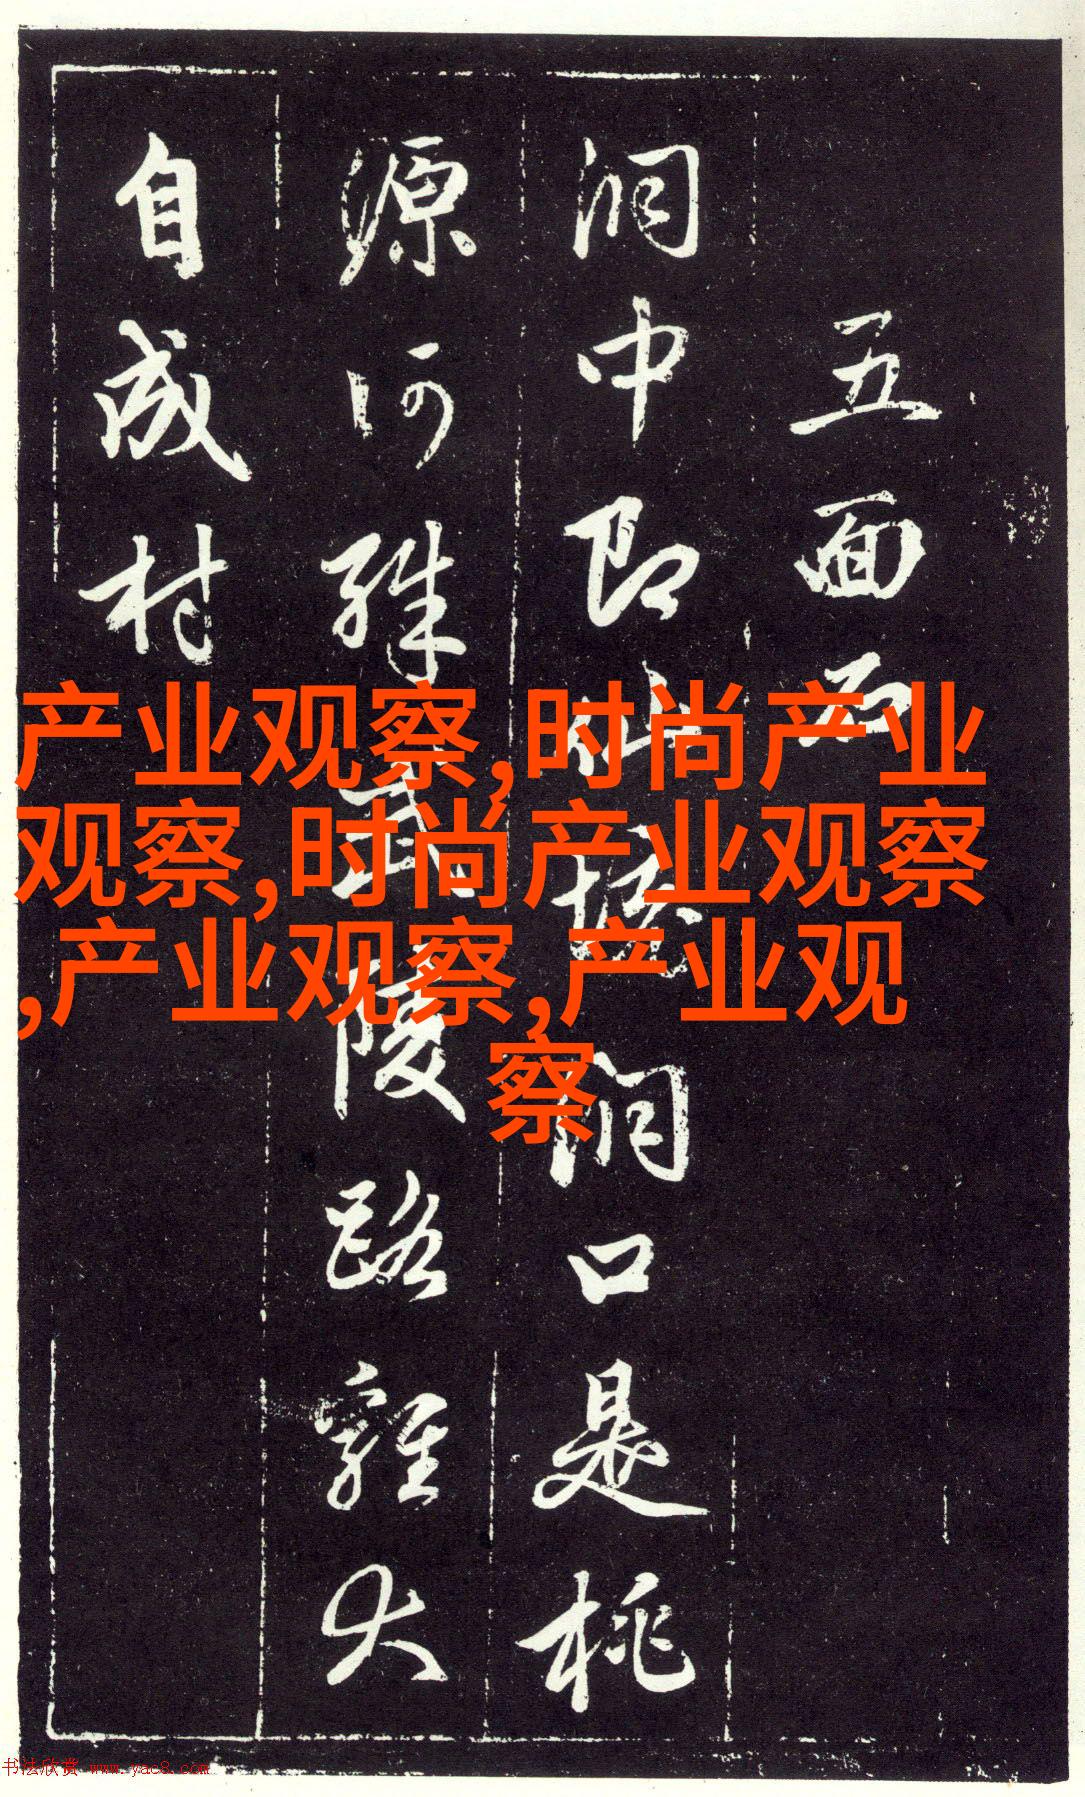 五面
洞中即仙境洞口是桃
源何殊武陵路雞犬
自成村
产业观察,时尚产业
观察,时尚产业观察
,产业观察,产业观
察
书法欣赏 www.yac8.com